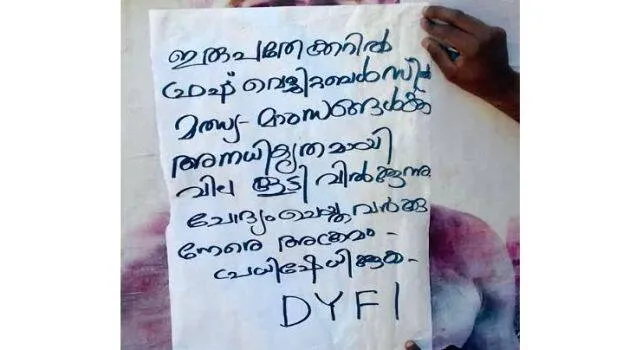 ഇരുപതേക്കറിൽ
ഫ്രഷ് വെജിറ്റബൾസിൽ
മത്സ്യ-മാംസങ്ങൾക്ക്
അനധികൃതമായി
വില കൂട്ടി വിൽക്കുന്നു
ചോദ്യം ചെയ്തവർക്കു
നേരെ അക്രമം -
പ്രതിഷേധിക്കുക -
DYFI